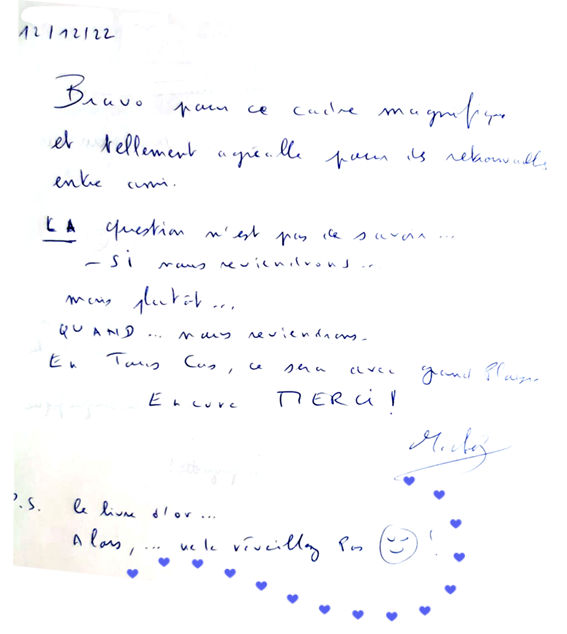 12/12/22
Bravo pour ce cadre magnifique
et tellement agréable pour des retrouvailles
entre ami.
LA question n'est pas de savoir...
- Si nous reviendrons..
mais plutôt...
QUAND... nous reviendrons.
En Tous Cas, ce sera avec grand Plaisir
Encore MERCI!
P.S. le livre d'or...
Alors, ... ne le réveillez Pas !